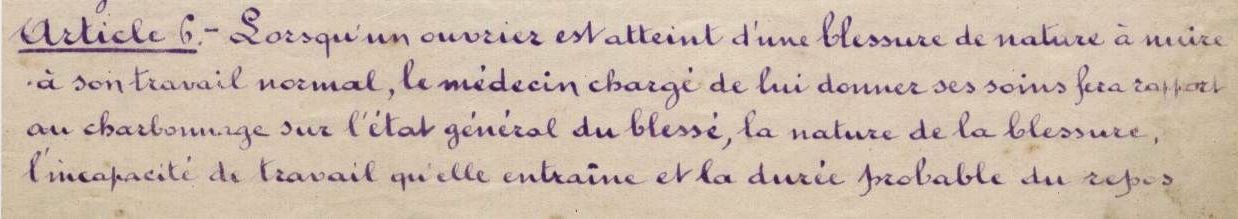 Article 6.- Lorsqu'un ouvrier est atteint d'une blessure de nature à nuire
à son travail normal, le médecin chargé de lui donner ses soins fera rapport
au charbonnage sur l'état général du blessé, la nature de la blessure,
l'incapacité de travail qu'elle entraîne et la durée probable du repos